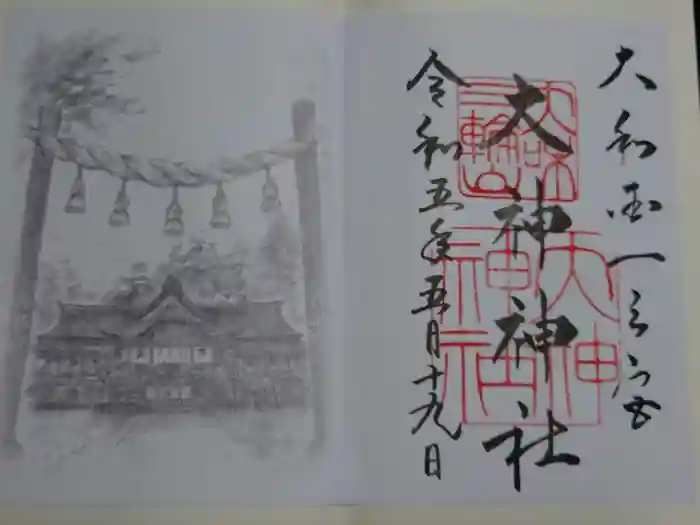 大和国一之宮
大神神社
令和五年五月十九日
三輪山
大神
神社